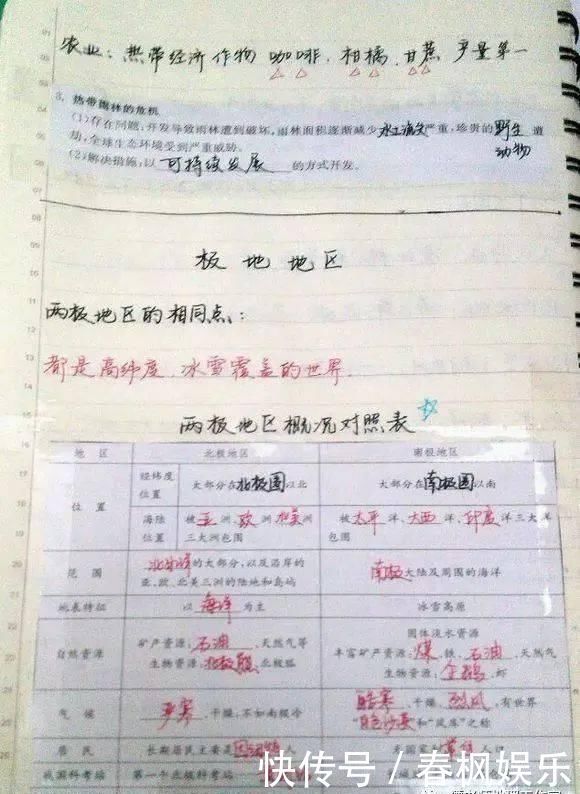 农业：热带经济作物 咖啡、柑橘、甘蔗 产量第一
3. 热带雨林的危机
(1)存在问题：开发导致雨林遭到破坏，雨林面积逐渐减少，水土流失严重，珍贵的野生动物遭
劫，全球生态环境受到严重威胁。
(2)解决措施：以 可持续发展 的方式开发。
极地地区
两极地区的相同点：
都是高纬度、冰雪覆盖的世界
两极地区概况对照表
地区 北极地区 南极地区
位置
经纬度位置 大部分在北极圈以北 大部分在南极圈以南
海陆位置 被亚洲、欧洲、北美洲三大洲包围 被太平洋、大西洋、印度洋三大洋包围
范围 北冰洋的大部分，以及沿岸的亚、欧、北美三洲的陆地和岛屿 南极大陆及周围的海洋
地表特征 以海洋为主 冰雪高原
自然资源 矿产资源：石油、天然气等 生物资源：北极熊、北极狐 固体淡水资源 丰富矿产资源：煤、铁、石油、天然气 生物资源：企鹅、虾
气候 严寒、干燥，不如南极冷 酷寒、干燥、烈风，有世界"白色沙漠"和"风库"之称
居民 长期居民主要是因纽特人
我国科考站 第一个北极科考站
快传号／春枫娱乐